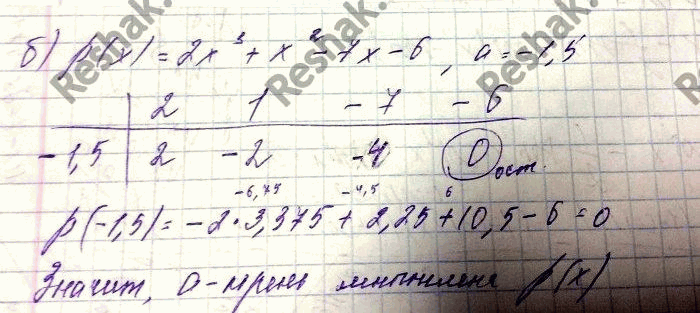 б) p(x) = 2x³ + x² - 7x - 6, a = -1,5
2 1 -7 -6
-1,5 2 -2 -4 0 ост.
-6,75 -4,5 6
p(-1,5) = -2·3,375 + 2,25 + 10,5 - 6 = 0
Значит, a - корень многочлена p(x)
Reshak.
Reshak.
Reshak.